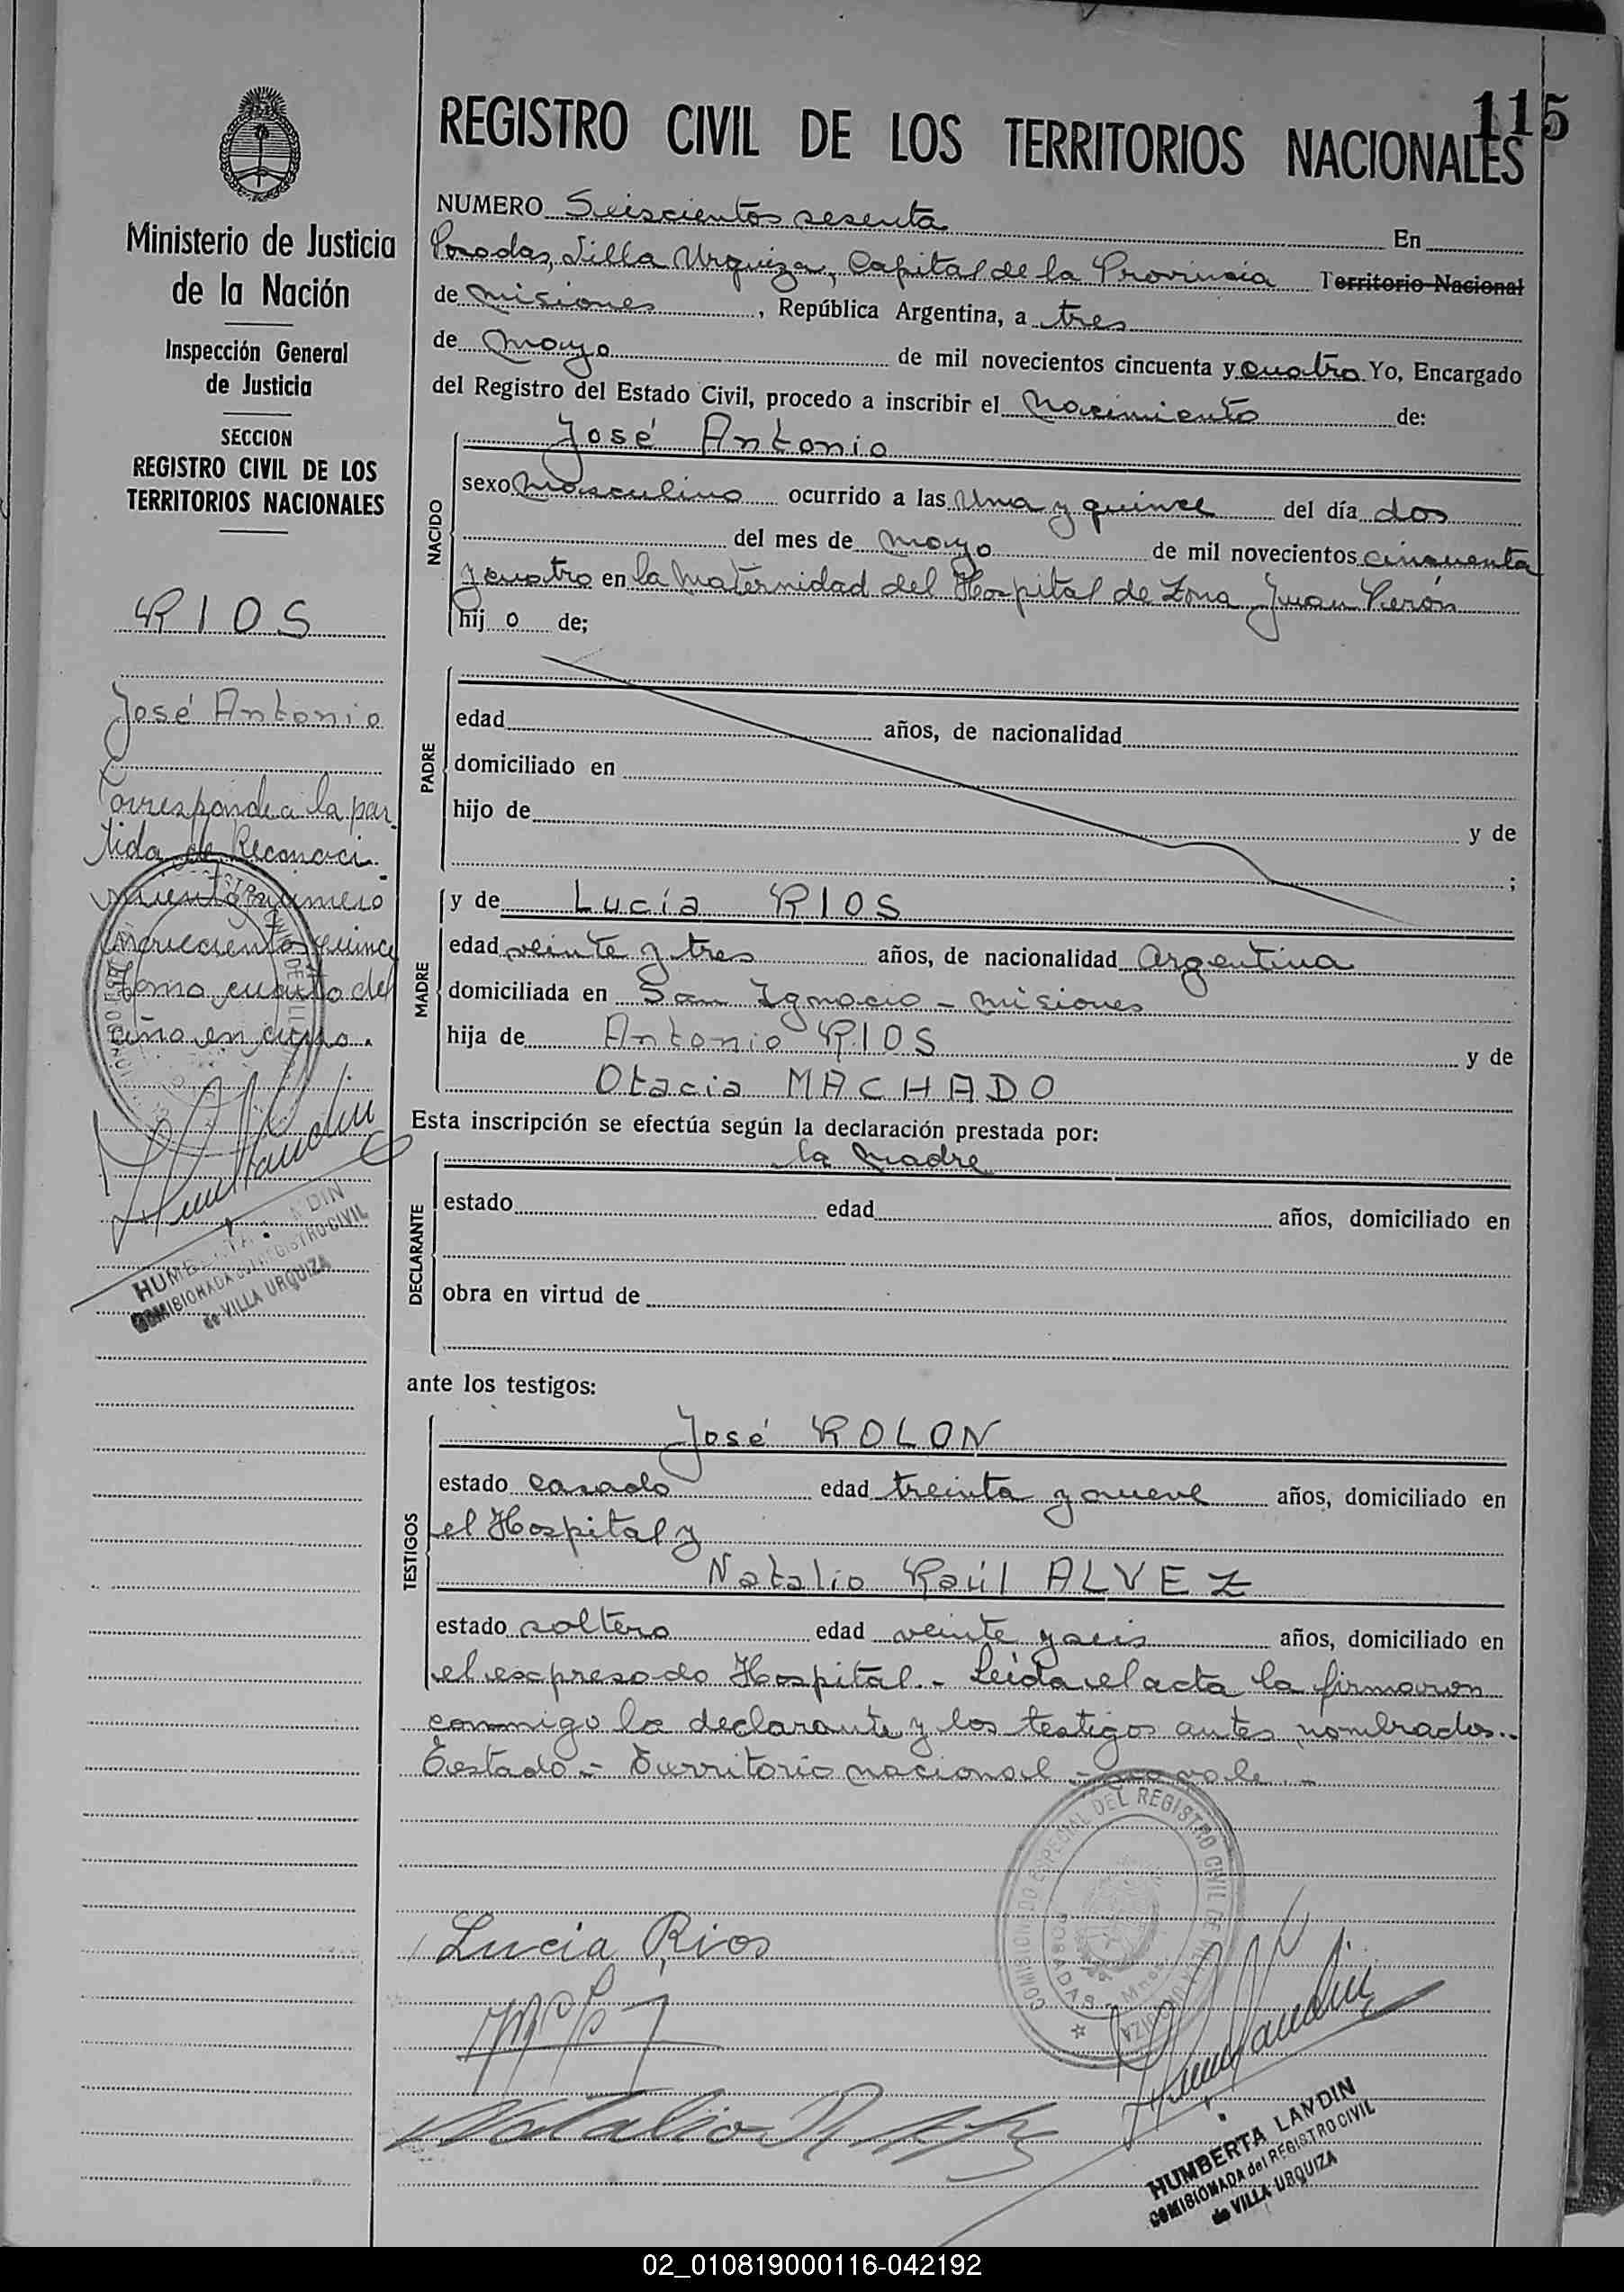 115
REGISTRO CIVIL DE LOS TERRITORIOS NACIONALES
Ministerio de Justicia
de la Nación
Inspección General
de Justicia
SECCION
REGISTRO CIVIL DE LOS
TERRITORIOS NACIONALES
RIOS
José Antonio
Corresponde a la par-
tida de Reconoci-
miento número
cuatrocientos quince
tomo cuarto del
año en curso.
HUMBERTA LANDIN
COMISIONADA del REGISTRO CIVIL
de VILLA URQUIZA
NUMERO Seiscientos sesenta En
Posadas, Villa Urquiza, Capital de la Provincia Territorio Nacional
de Misiones, República Argentina, a tres
de Mayo de mil novecientos cincuenta y cuatro Yo, Encargado
del Registro del Estado Civil, procedo a inscribir el Nacimiento de:
NACIDO
José Antonio
sexo Masculino ocurrido a las Una y quince del día dos
del mes de Mayo de mil novecientos cincuenta
y cuatro en la Maternidad del Hospital de Zona Juan Perón
hijo de;
PADRE
edad años, de nacionalidad
domiciliado en
hijo de y de
;
MADRE
y de Lucía RIOS
edad veinte y tres años, de nacionalidad Argentina
domiciliada en San Ignacio - Misiones
hija de Antonio RIOS y de
Otacia MACHADO
Esta inscripción se efectúa según la declaración prestada por:
DECLARANTE
la Madre
estado edad años, domiciliado en
obra en virtud de
ante los testigos:
TESTIGOS
José ROLON
estado casado edad treinta y nueve años, domiciliado en
el Hospital y
Natalio Raúl ALVEZ
estado soltero edad veinte y seis años, domiciliado en
el expresado Hospital.- Leída el acta la firmaron
conmigo la declarante y los testigos antes nombrados.-
Testado - Territorio nacional - no vale.-
COMISIONADO ESPECIAL DEL REGISTRO CIVIL DE VILLA URQUIZA
POSADAS Mnes
Lucia Rios
Natalio R.
HUMBERTA LANDIN
COMISIONADA del REGISTRO CIVIL
de VILLA URQUIZA
02_010819000116-042192